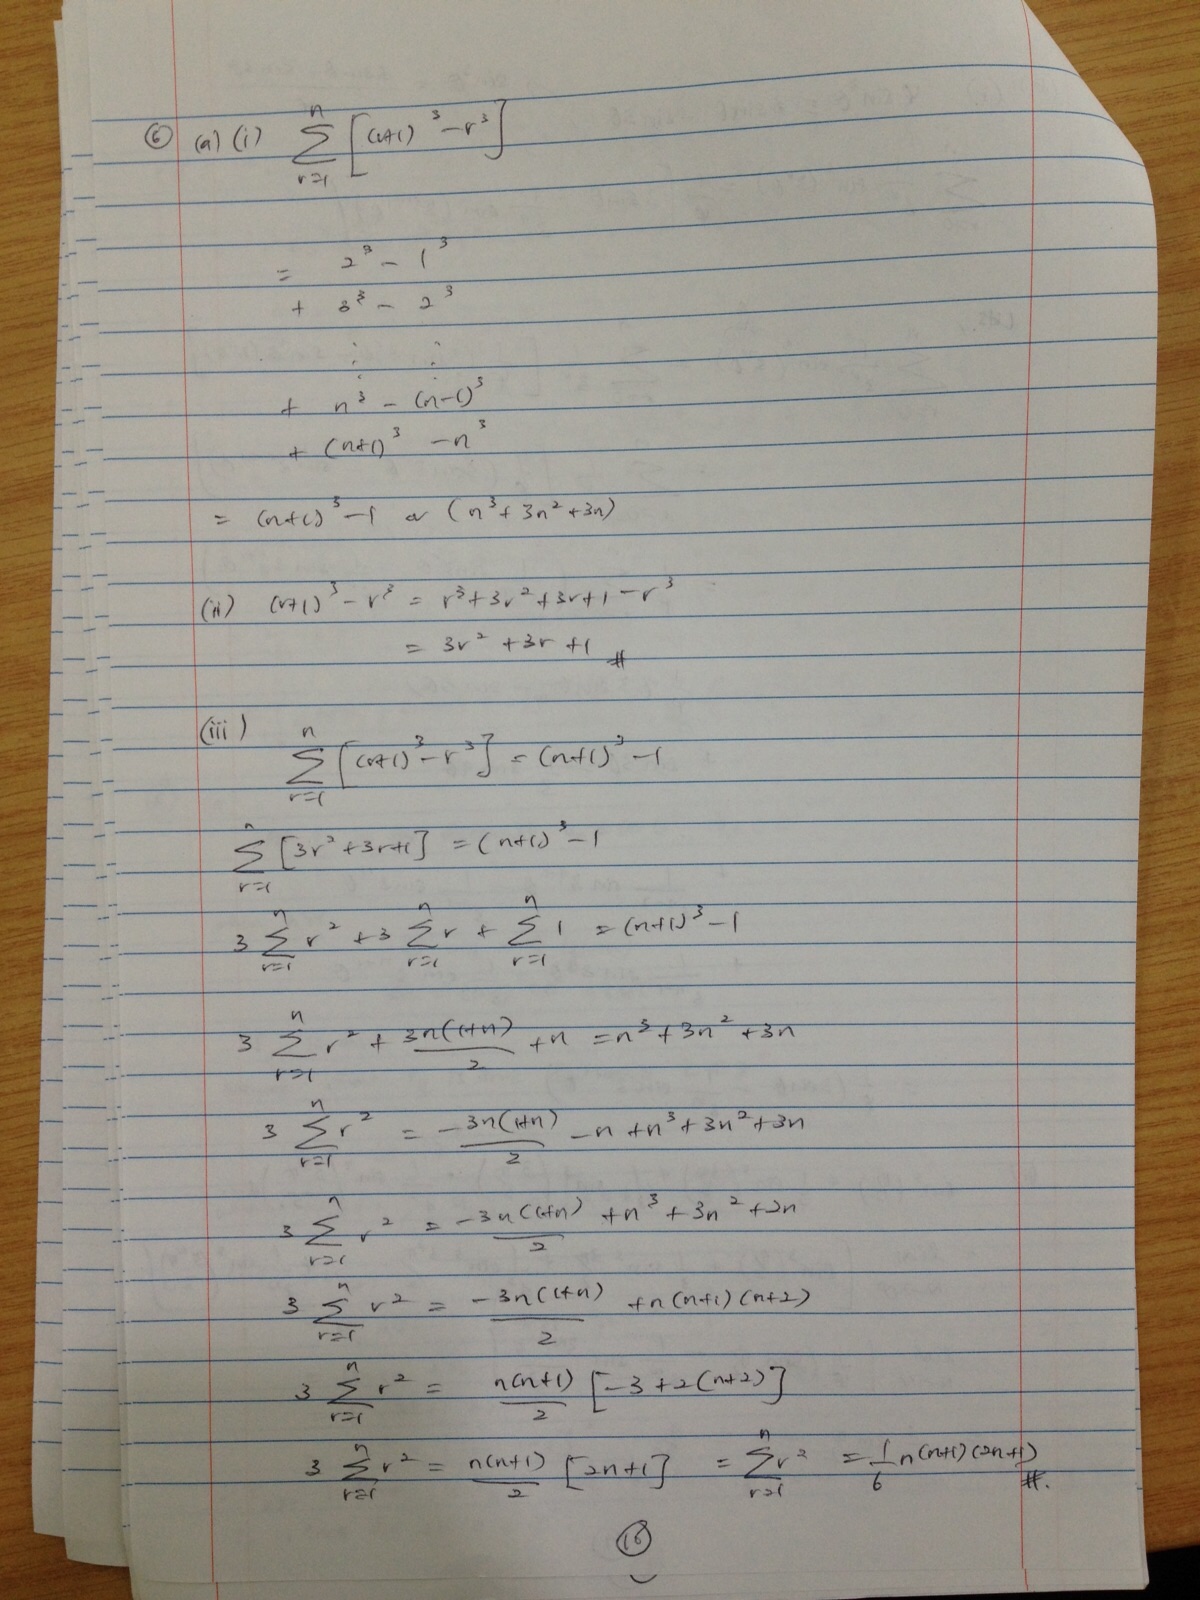 ⑥ (a) (i) ∑_{r=1}^{n} [(r+1)³ - r³]
= 2³ - 1³
+ 3³ - 2³
⋮ ⋮
+ n³ - (n-1)³
+ (n+1)³ - n³
= (n+1)³ - 1 or (n³ + 3n² + 3n)
(ii) (r+1)³ - r³ = r³ + 3r² + 3r + 1 - r³
= 3r² + 3r + 1 #
(iii) ∑_{r=1}^{n} [(r+1)³ - r³] = (n+1)³ - 1
∑_{r=1}^{n} [3r² + 3r + 1] = (n+1)³ - 1
3 ∑_{r=1}^{n} r² + 3 ∑_{r=1}^{n} r + ∑_{r=1}^{n} 1 = (n+1)³ - 1
3 ∑_{r=1}^{n} r² + 3n(1+n)/2 + n = n³ + 3n² + 3n
3 ∑_{r=1}^{n} r² = -3n(1+n)/2 - n + n³ + 3n² + 3n
3 ∑_{r=1}^{n} r² = -3n(1+n)/2 + n³ + 3n² + 2n
3 ∑_{r=1}^{n} r² = -3n(1+n)/2 + n(n+1)(n+2)
3 ∑_{r=1}^{n} r² = n(n+1)/2 [-3 + 2(n+2)]
3 ∑_{r=1}^{n} r² = n(n+1)/2 [2n+1] = ∑_{r=1}^{n} r² = 1/6 n(n+1)(2n+1) #.